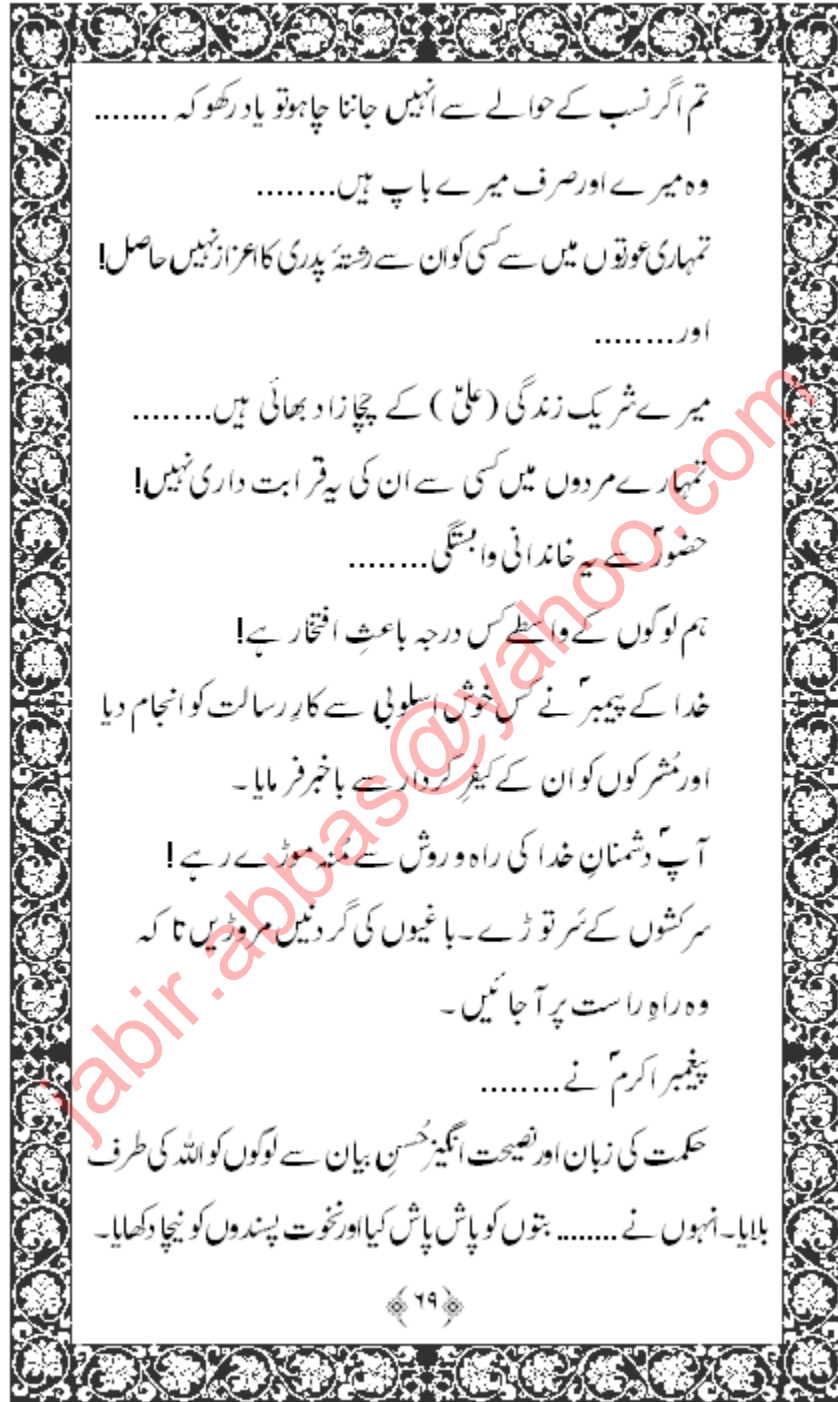 تم اگر نسب کے حوالے سے انہیں جاننا چاہو تو یاد رکھو کہ ........
وہ میرے اور صرف میرے باپ ہیں........
تمہاری عورتوں میں سے کسی کو ان سے رشتۂ پدری کا اعزاز نہیں حاصل!
اور........
میرے شریک زندگی (علیؑ) کے چچا زاد بھائی ہیں........
تمہارے مردوں میں کسی سے ان کی یہ قرابت داری نہیں!
حضورؐ سے یہ خاندانی وابستگی........
ہم لوگوں کے واسطے کس درجہ باعثِ افتخار ہے!
خدا کے پیمبرؐ نے کس خوش اسلوبی سے کارِ رسالت کو انجام دیا
اور مُشرکوں کو ان کے کیفرِ کردار سے باخبر فرمایا۔
آپؐ دشمنانِ خدا کی راہ و روش سے مُنہ موڑے رہے!
سرکشوں کے سَر توڑے۔ باغیوں کی گردنیں مروڑیں تاکہ
وہ راہِ راست پر آجائیں۔
پیغمبر اکرمؐ نے........
حکمت کی زبان اور نصیحت انگیز حُسنِ بیان سے لوگوں کو اللہ کی طرف
بلایا۔ انہوں نے ........ بتوں کو پاش پاش کیا اور نخوت پسندوں کو نیچا دکھایا۔
﴿۶۹﴾
jabir.abbas@yahoo.com